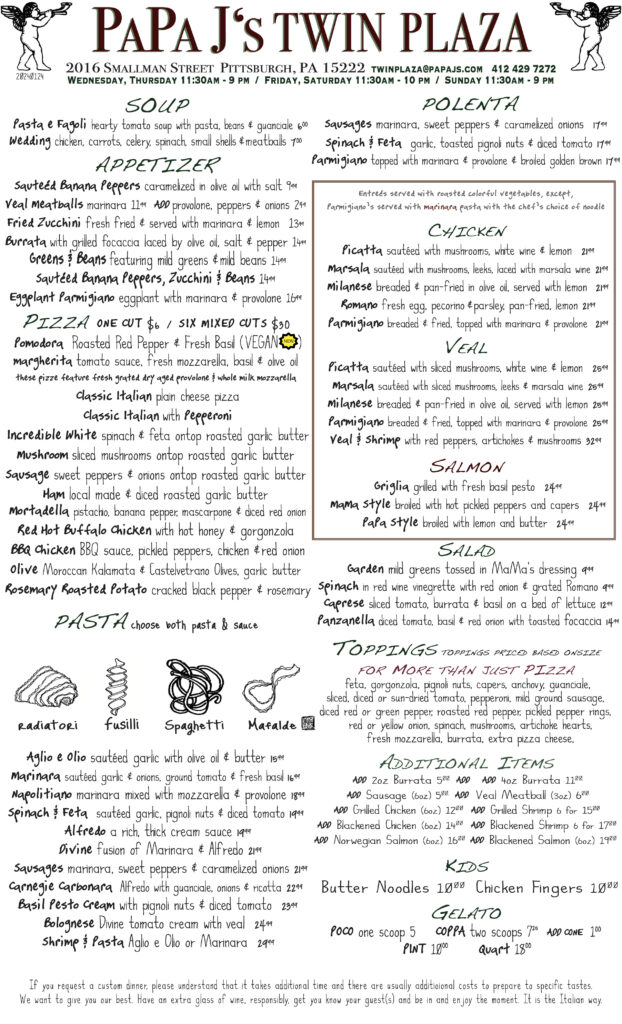 PaPa J's TWIN PLAZA
20240124
2016 Smallman Street Pittsburgh, PA 15222 twinplaza@papajs.com 412 429 7272
Wednesday, Thursday 11:30am - 9 pm / Friday, Saturday 11:30am - 10 pm / Sunday 11:30am - 9 pm
SOUP
Pasta e Fagoli hearty tomato soup with pasta, beans & guanciale 6⁰⁰
Wedding chicken, carrots, celery, spinach, small shells & meatballs 7⁰⁰
APPETIZER
Sauteéd Banana Peppers caramelized in olive oil with salt 9⁹⁹
Veal Meatballs marinara 11⁹⁹ ADD provolone, peppers & onions 2⁹⁹
Fried Zucchini fresh fried & served with marinara & lemon 13⁹⁹
Burrata with grilled focaccia laced by olive oil, salt & pepper 14⁹⁹
Greens & Beans featuring mild greens & mild beans 14⁹⁹
Sautéed Banana Peppers, Zucchini & Beans 14⁹⁹
Eggplant Parmigiano eggplant with marinara & provolone 16⁹⁹
PIZZA ONE CUT $6 / SIX MIXED CUTS $30
Pomodora Roasted Red Pepper & Fresh Basil (VEGAN NEW)
margherita tomato sauce, fresh mozzarella, basil & olive oil
these pizze feature fresh grated dry aged provolone & whole milk mozzarella
Classic Italian plain cheese pizza
Classic Italian with Pepperoni
Incredible White spinach & feta ontop roasted garlic butter
Mushroom sliced mushrooms ontop roasted garlic butter
Sausage sweet peppers & onions ontop roasted garlic butter
Ham local made & diced roasted garlic butter
Mortadella pistacho, banana pepper, mascarpone & diced red onion
Red Hot Buffalo Chicken with hot honey & gorgonzola
BBQ Chicken BBQ sauce, pickled peppers, chicken & red onion
Olive Moroccan Kalamata & Castelvetrano Olives, garlic butter
Rosemary Roasted Potato cracked black pepper & rosemary
PASTA choose both pasta & sauce
radiatori fusilli Spaghetti Mafalde
Aglio e Olio sautéed garlic with olive oil & butter 15⁹⁹
Marinara sautéed garlic & onions, ground tomato & fresh basil 16⁹⁹
Napolitiano marinara mixed with mozzarella & provolone 18⁹⁹
Spinach & Feta sautéed garlic, pignoli nuts & diced tomato 19⁹⁹
Alfredo a rich, thick cream sauce 19⁹⁹
Divine fusion of Marinara & Alfredo 21⁹⁹
Sausages marinara, sweet peppers & caramelized onions 21⁹⁹
Carnegie Carbonara Alfredo with guanciale, onions & ricotta 22⁹⁹
Basil Pesto Cream with pignoli nuts & diced tomato 23⁹⁹
Bolognese Divine tomato cream with veal 24⁹⁹
Shrimp & Pasta Aglio e Olio or Marinara 29⁹⁹
POLENTA
Sausages marinara, sweet peppers & caramelized onions 17⁹⁹
Spinach & Feta garlic, toasted pignoli nuts & diced tomato 17⁹⁹
Parmigiano topped with marinara & provolone & broiled golden brown 17⁹⁹
Entreés served with roasted colorful vegetables, except,
Parmigiano's served with marinara pasta with the chef's choice of noodle
CHICKEN
Picatta sautéed with mushrooms, white wine & lemon 21⁹⁹
Marsala sautéed with mushrooms, leeks, laced with marsala wine 21⁹⁹
Milanese breaded & pan-fried in olive oil, served with lemon 21⁹⁹
Romano fresh egg, pecorino & parsley, pan-fried, lemon 21⁹⁹
Parmigiano breaded & fried, topped with marinara & provolone 21⁹⁹
VEAL
Picatta sautéed with sliced mushrooms, white wine & lemon 25⁹⁹
Marsala sautéed with sliced mushrooms, leeks & marsala wine 25⁹⁹
Milanese breaded & pan-fried in olive oil, served with lemon 25⁹⁹
Parmigiano breaded & fried, topped with marinara & provolone 25⁹⁹
Veal & Shrimp with red peppers, artichokes & mushrooms 32⁹⁹
SALMON
Griglia grilled with fresh basil pesto 24⁹⁹
Mama Style broiled with hot pickled peppers and capers 24⁹⁹
Papa Style broiled with lemon and butter 24⁹⁹
SALAD
Garden mild greens tossed in MaMa's dressing 9⁹⁹
Spinach in red wine vinegrette with red onion & grated Romano 9⁹⁹
Caprese sliced tomato, burrata & basil on a bed of lettuce 12⁹⁹
Panzanella diced tomato, basil & red onion with toasted focaccia 14⁹⁹
TOPPINGS TOPPINGS PRICED BASED ONSIZE
FOR MORE THAN JUST PIZZA
feta, gorgonzola, pignoli nuts, capers, anchovy, guanciale,
sliced, diced or sun-dried tomato, pepperoni, mild ground sausage,
diced red or green pepper, roasted red pepper, pickled pepper rings,
red or yellow onion, spinach, mushrooms, artichoke hearts,
fresh mozzarella, burrata, extra pizza cheese,
ADDITIONAL ITEMS
ADD 2oz Burrata 5⁰⁰ ADD ADD 4oz Burrata 11⁰⁰
ADD Sausage (6oz) 5⁰⁰ ADD Veal Meatball (3oz) 6⁰⁰
ADD Grilled Chicken (6oz) 12⁰⁰ ADD Grilled Shrimp 6 for 15⁰⁰
ADD Blackened Chicken (6oz) 14⁰⁰ ADD Blackened Shrimp 6 for 17⁰⁰
ADD Norwegian Salmon (6oz) 16⁰⁰ ADD Blackened Salmon (6oz) 19⁰⁰
KIDS
Butter Noodles 10⁰⁰ Chicken Fingers 10⁰⁰
GELATO
POCO one scoop 5 COPPA two scoops 7²⁵ ADD CONE 1⁰⁰
PINT 10⁰⁰ Quart 18⁰⁰
If you request a custom dinner, please understand that it takes additional time and there are usually additioional costs to prepare to specific tastes.
We want to give you our best. Have an extra glass of wine, responsibly, get you know your guest(s) and be in and enjoy the moment. It is the Italian way.